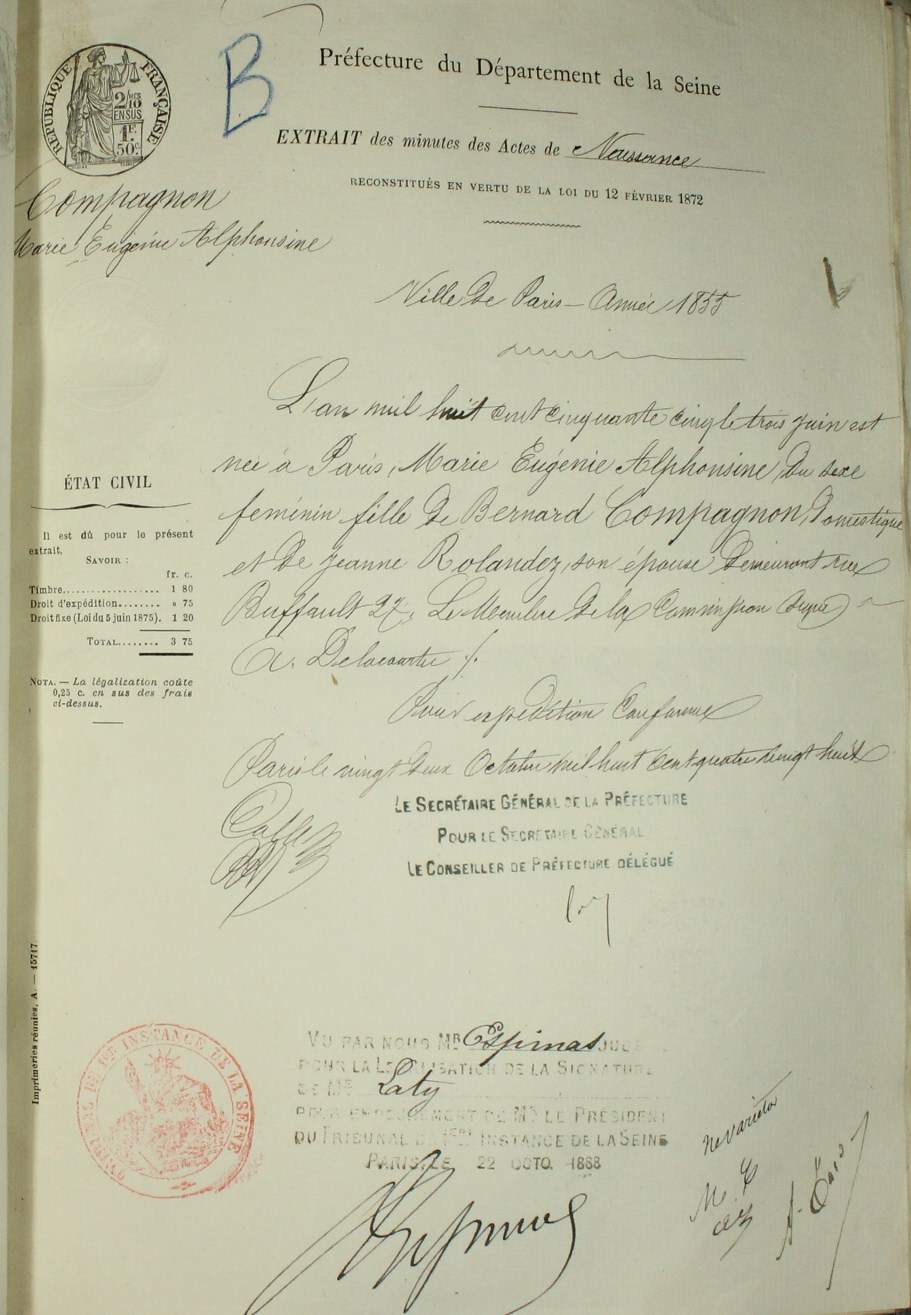 RÉPUBLIQUE FRANÇAISE
2/10 MES
EN SUS
1F
50C
B
Préfecture du Département de la Seine
EXTRAIT des minutes des Actes de Naissance
RECONSTITUÉS EN VERTU DE LA LOI DU 12 FÉVRIER 1872
Compagnon
Marie Eugénie Alphonsine
Ville de Paris – Année 1855
L'an mil huit cent cinquante cinq le trois juin est
née à Paris, Marie Eugénie Alphonsine, du sexe
féminin fille de Bernard Compagnon, domestique
et de Jeanne Rolandez, son épouse demeurant rue
Buffault 27. Le Membre de la Commission signé
A. Delacourtie ./.
Pour expédition Conforme
Paris le vingt deux Octobre mil huit cent quatre vingt huit
ÉTAT CIVIL
Il est dû pour le présent
extrait,
SAVOIR :
fr. c.
Timbre.................. 1 80
Droit d'expédition........ » 75
Droit fixe (Loi du 5 juin 1875). 1 20
TOTAL........ 3 75
NOTA. — La légalisation coûte
0,25 c. en sus des frais
ci-dessus.
LE SECRÉTAIRE GÉNÉRAL DE LA PRÉFECTURE
POUR LE SECRÉTAIRE GÉNÉRAL
LE CONSEILLER DE PRÉFECTURE DÉLÉGUÉ
Imprimeries réunies, A. — 15717
TRIBUNAL DE 1RE INSTANCE DE LA SEINE
VU PAR NOUS MR Espinas JUGE
POUR LA LÉGALISATION DE LA SIGNATURE
DE MR Laty
POUR EMPÊCHEMENT DE MR LE PRÉSIDENT
DU TRIBUNAL DE 1ERE INSTANCE DE LA SEINE
PARIS, LE 22 OCTO. 1888
Ne varietur
M. C